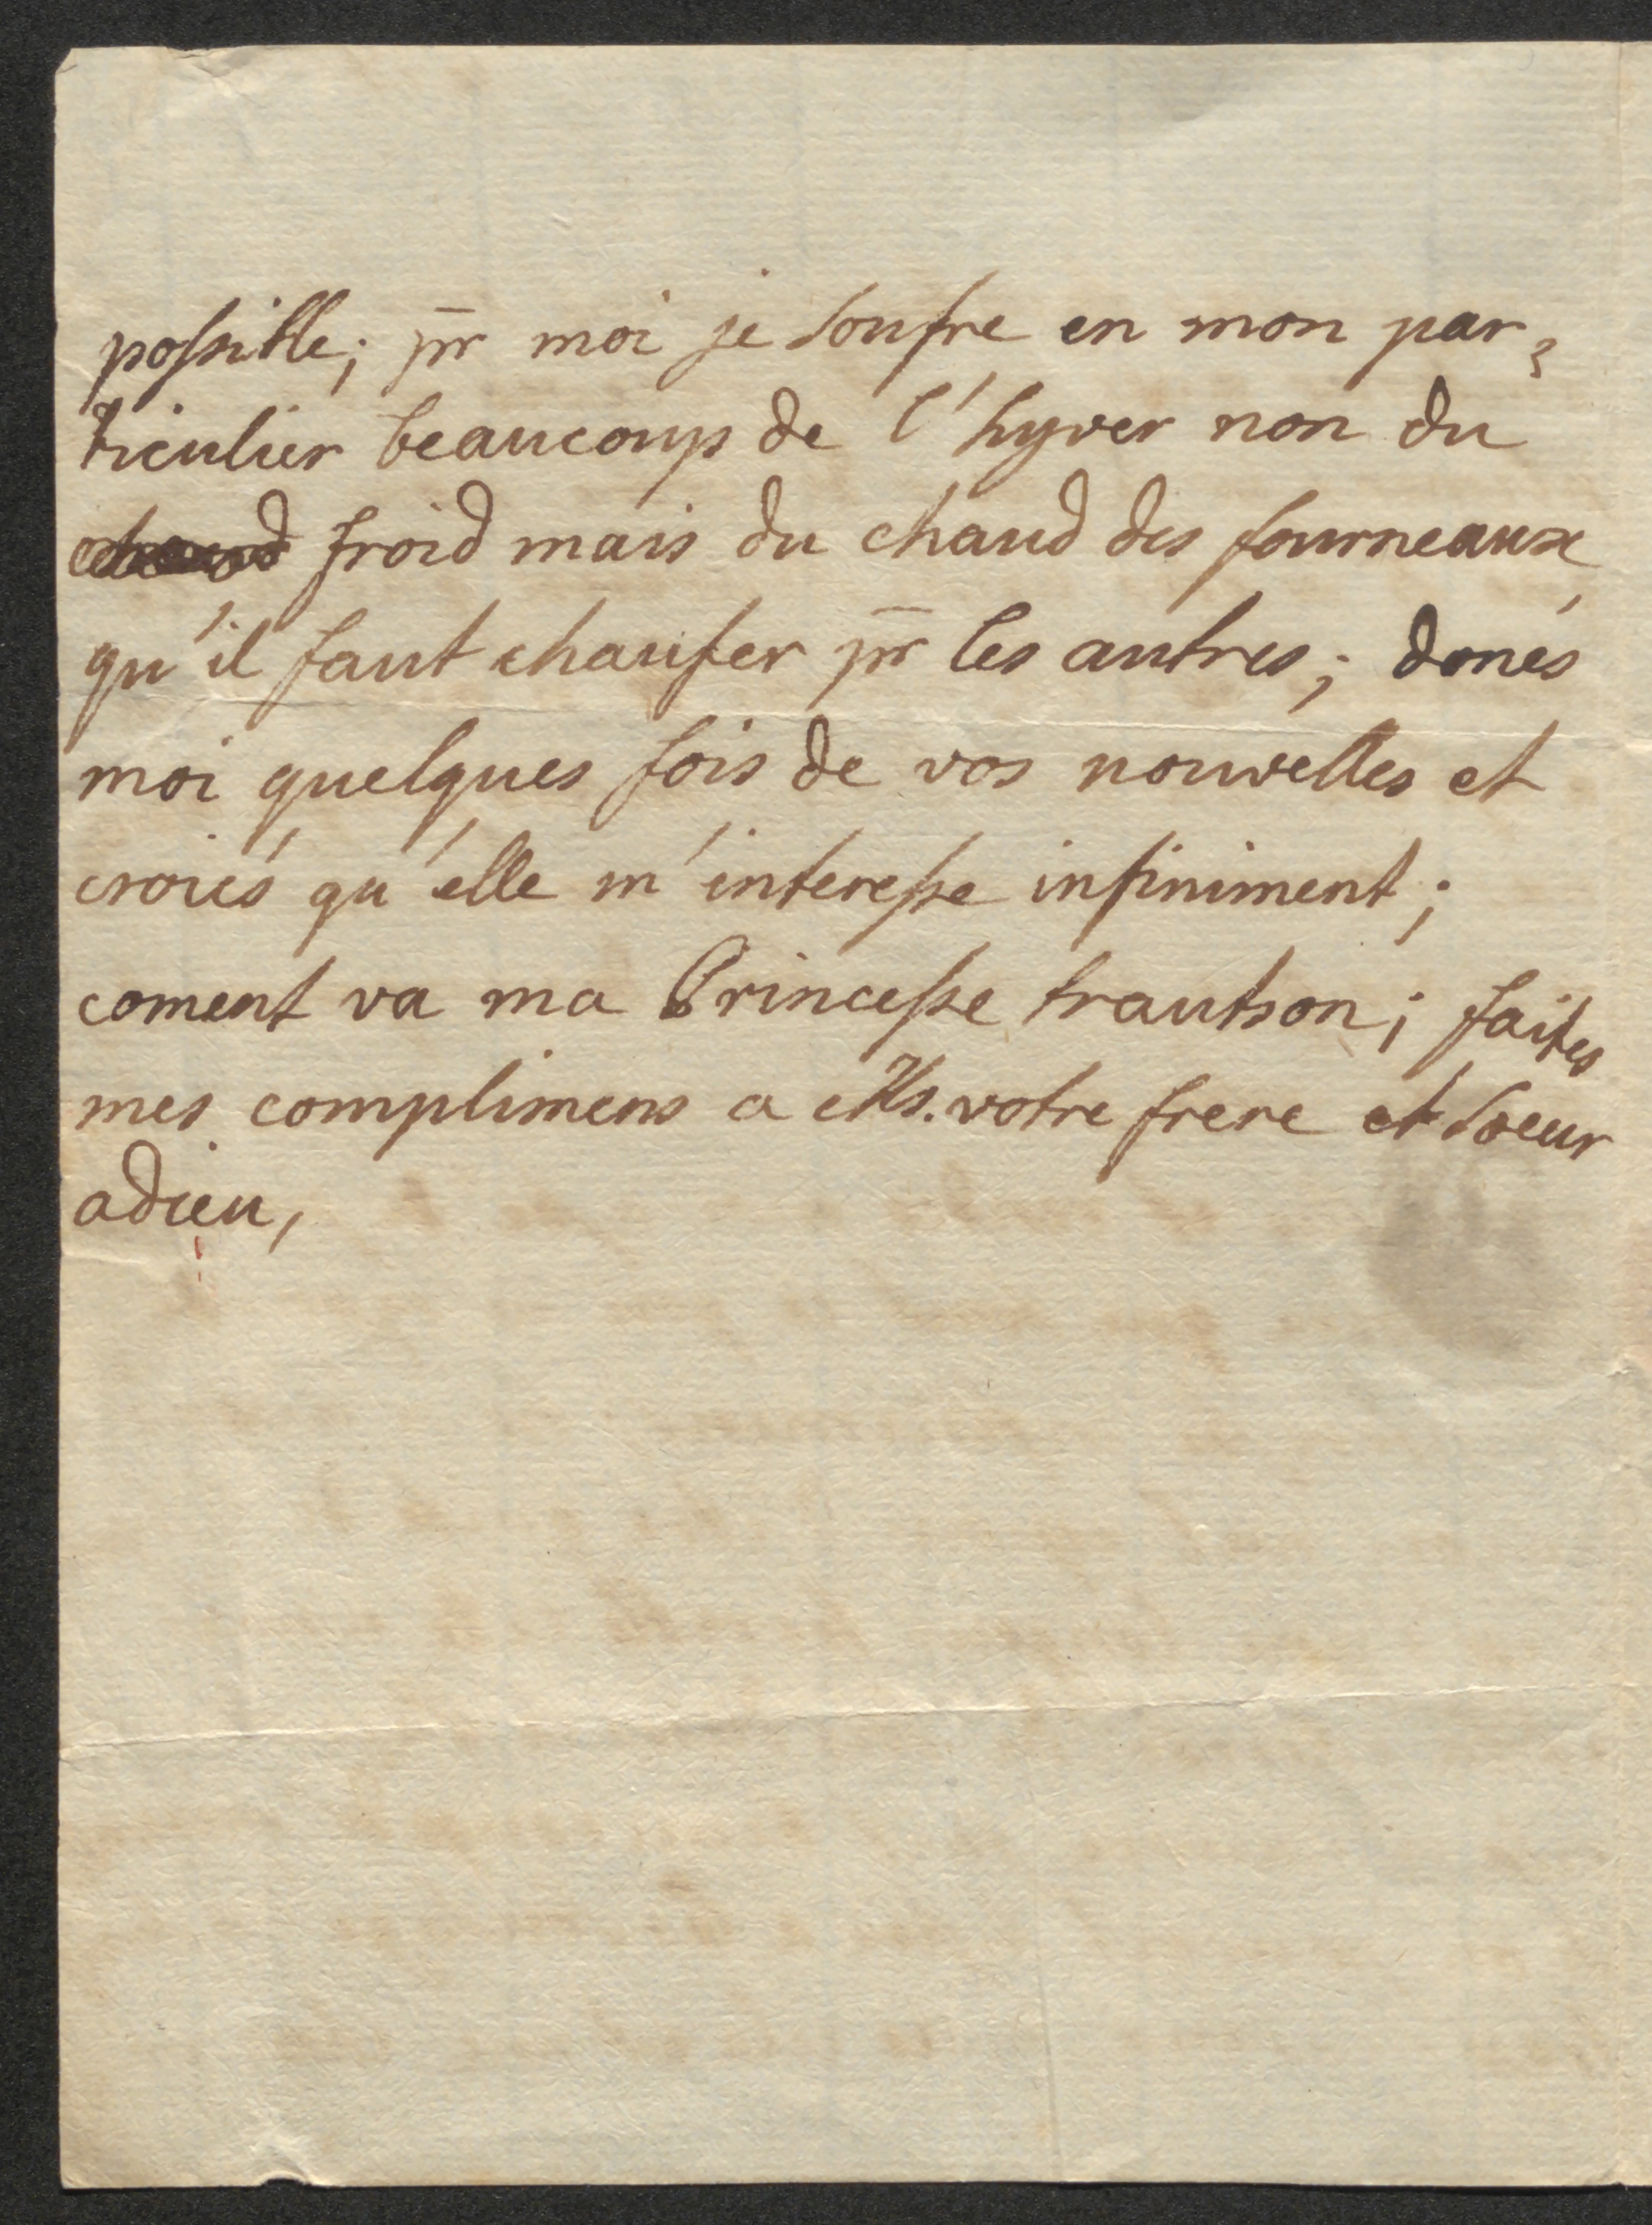 possible; pr moi je soufre en mon par=
ticulier beaucoup de l'hyver non du
chaud froid mais du chaud des fourneaux
qu'il faut chaufer pr les autres; donés
moi quelques fois de vos nouvelles et
croiés qu'elle m'interesse infiniment;
coment va ma Princesse trautson; faites
mes complimens a Ms. votre frere et soeur
adieu,